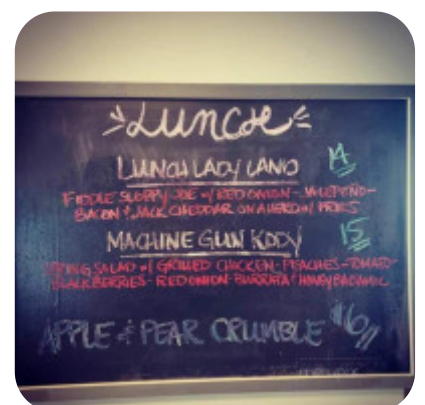 LUNCH
LUNCH LADY LAND 14
FIDDLE SLOPPY JOE w/ RED ONION - JALEPEÑO -
BACON & JACK CHEDDAR ON A HERO w/ FRIES
MACHINE GUN KODY 15
SPRING SALAD w/ GRILLED CHICKEN - PEACHES - TOMATO
BLACKBERRIES - RED ONION - BURRATA & HONEY BALSAMIC
APPLE & PEAR CRUMBLE $6